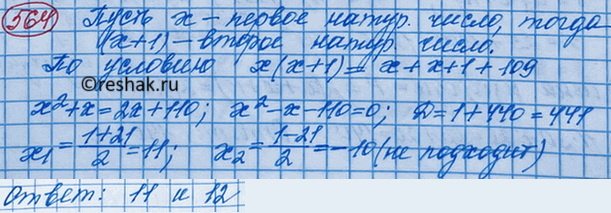 564 Пусть x – первое натур. число, тогда
(x+1) – второе натур. число.
По условию x(x+1) = x+x+1+109
©reshak.ru
x²+x=2x+110; x²-x-110=0; D=1+440=441
x₁=(1+21)/2=11; x₂=(1-21)/2=-10 (не подходит)
Ответ: 11 и 12